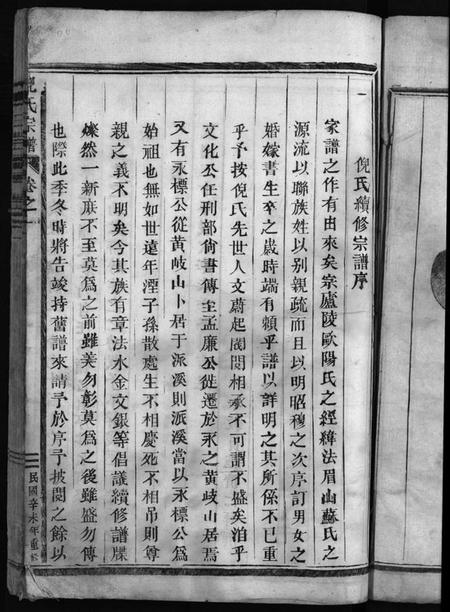 倪氏續修宗譜序
家譜之作有由來矣宗廬陵歐陽氏之經緯法眉山蘇氏之
源流以聯族姓以别親疏而且以明昭穆之次序訂男女之
婚嫁書生卒之歲時端有賴乎譜以詳明之其所係不已重
乎予按倪氏先世人文蔚起閥閱相承不可謂不盛矣洎乎
文化公任刑部尙書傳至孟廉公徙遷於永之黄岐山居焉
又有永標公從黄岐山卜居于派溪則派溪當以永標公爲
始祖也無如世遠年湮子孫散處生不相慶死不相吊則尊
親之義不明矣今其族有章法水金文銀等倡議續修譜牒
燦然一新庶不至莫爲之前雖美勿彰莫爲之後雖盛勿傳
也際此季冬時將告竣持舊譜來請予於序予披閱之餘以
倪氏宗譜 卷之一
民國辛未年重修